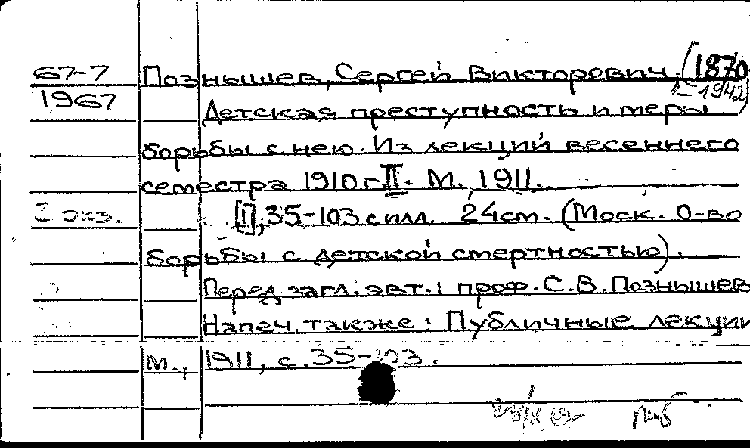 67-7 Познышев, Сергей Викторович, (1870
1967 — 1942)
Детская преступность и меры
борьбы с нею. Из лекций весеннего
семестра 1910 г. II. М., 1911.
I экз. [I], 35-103 с илл. 24 см. (Моск. О-во
борьбы с детской смертностью).
Перед загл. авт.: проф. С. В. Познышев
Напеч. также: Публичные лекции
М., 1911, с. 35-103.